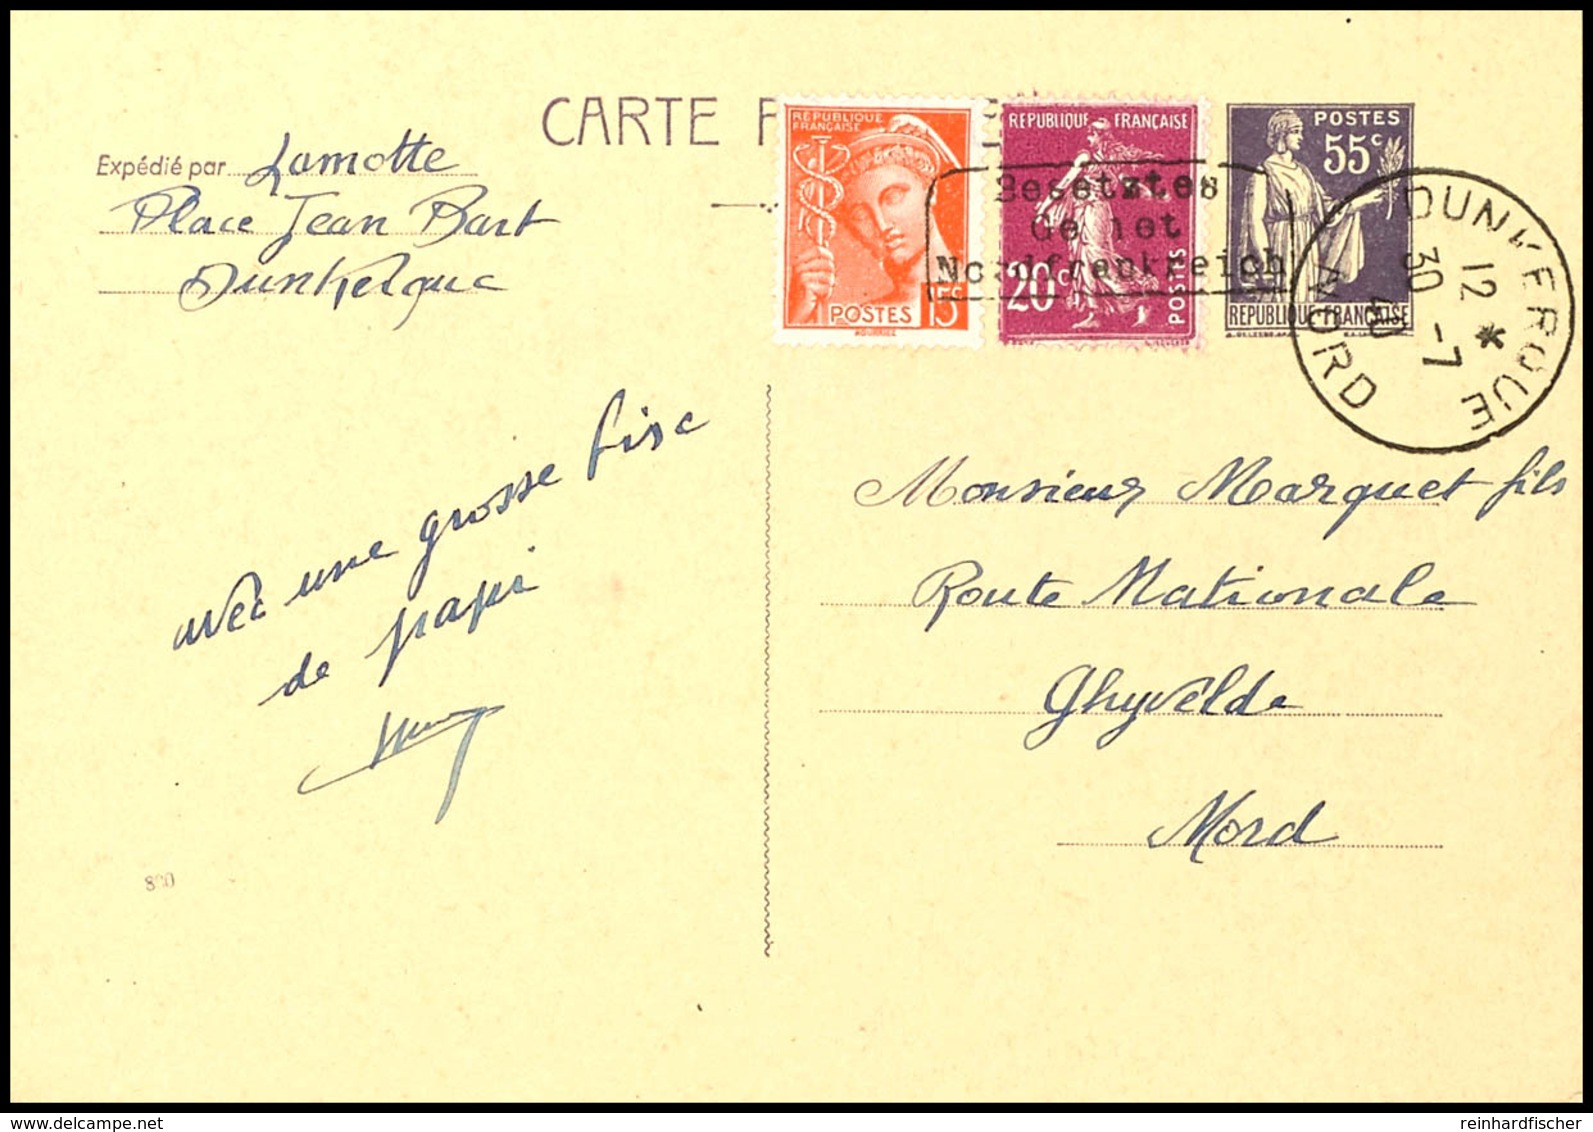 CARTE P
Expédié par Lamotte
Place Jean Bart
Dunkerque
REPUBLIQUE
FRANÇAISE
POSTES 15c
REPUBLIQUE FRANÇAISE
20c POSTES
POSTES
55c
REPUBLIQUE FRANÇAISE
Besetztes
Gebiet
Nordfrankreich
DUNKERQUE
12 *
30 -7
40
NORD
avec une grosse bise
de papi
Monsieur Marquet fils
Route Nationale
Ghyvelde
Nord
800
delcampe.net
reinhardfischer